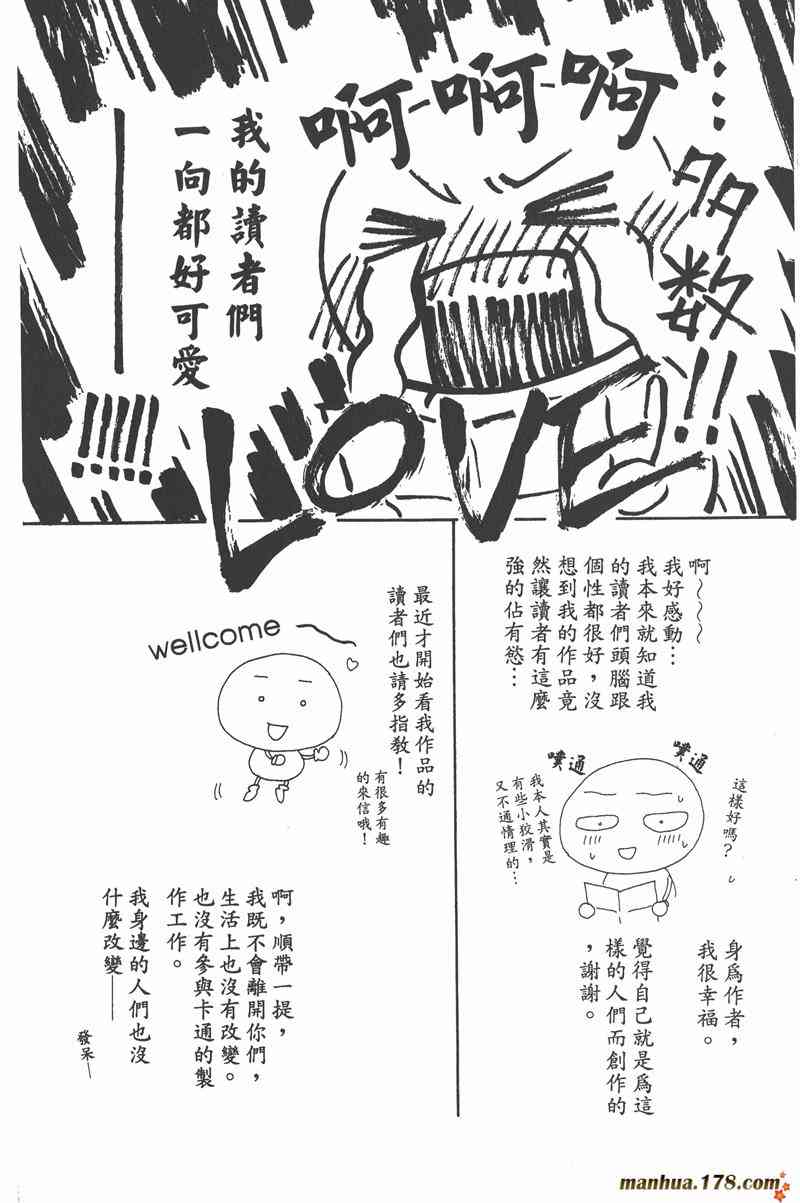 啊-啊-啊
…多数!!
我的讀者們
一向都好可愛
——!!!!!
LOVE
啊～～～
我好感動…
我本來就知道我
的讀者們頭腦跟
個性都很好，沒
想到我的作品竟
然讓讀者有這麼
強的佔有慾…
這樣好嗎？
噗通
噗通
我本人其實是
有些小狡滑，
又不通情理的…
身爲作者，
我很幸福。
覺得自己就是爲這
樣的人們而創作的
，謝謝。
最近才開始看我作品的
讀者們也請多指教！
有很多有趣
的來信哦！
wellcome
啊，順帶一提，
我既不會離開你們，
生活上也沒有改變。
也沒有參與卡通的製
作工作。
我身邊的人們也沒
什麼改變——
發呆—
manhua.178.com